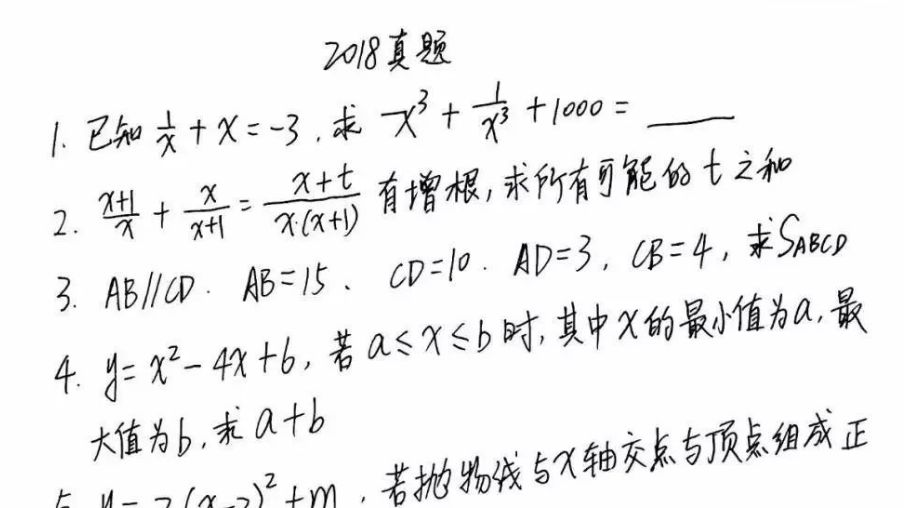 2018真题
1. 已知 1/x + x = -3, 求 x³ + 1/x³ + 1000 = ____
2. (x+1)/x + x/(x+1) = (x+t)/(x·(x+1)) 有增根, 求所有可能的 t 之和
3. AB//CD. AB=15、 CD=10. AD=3, CB=4, 求SABCD
4. y = x² - 4x + 6, 若 a ≤ x ≤ b 时, 其中 x 的最小值为 a, 最
大值为 b, 求 a+b
若抛物线与 x 轴交点与顶点组成正